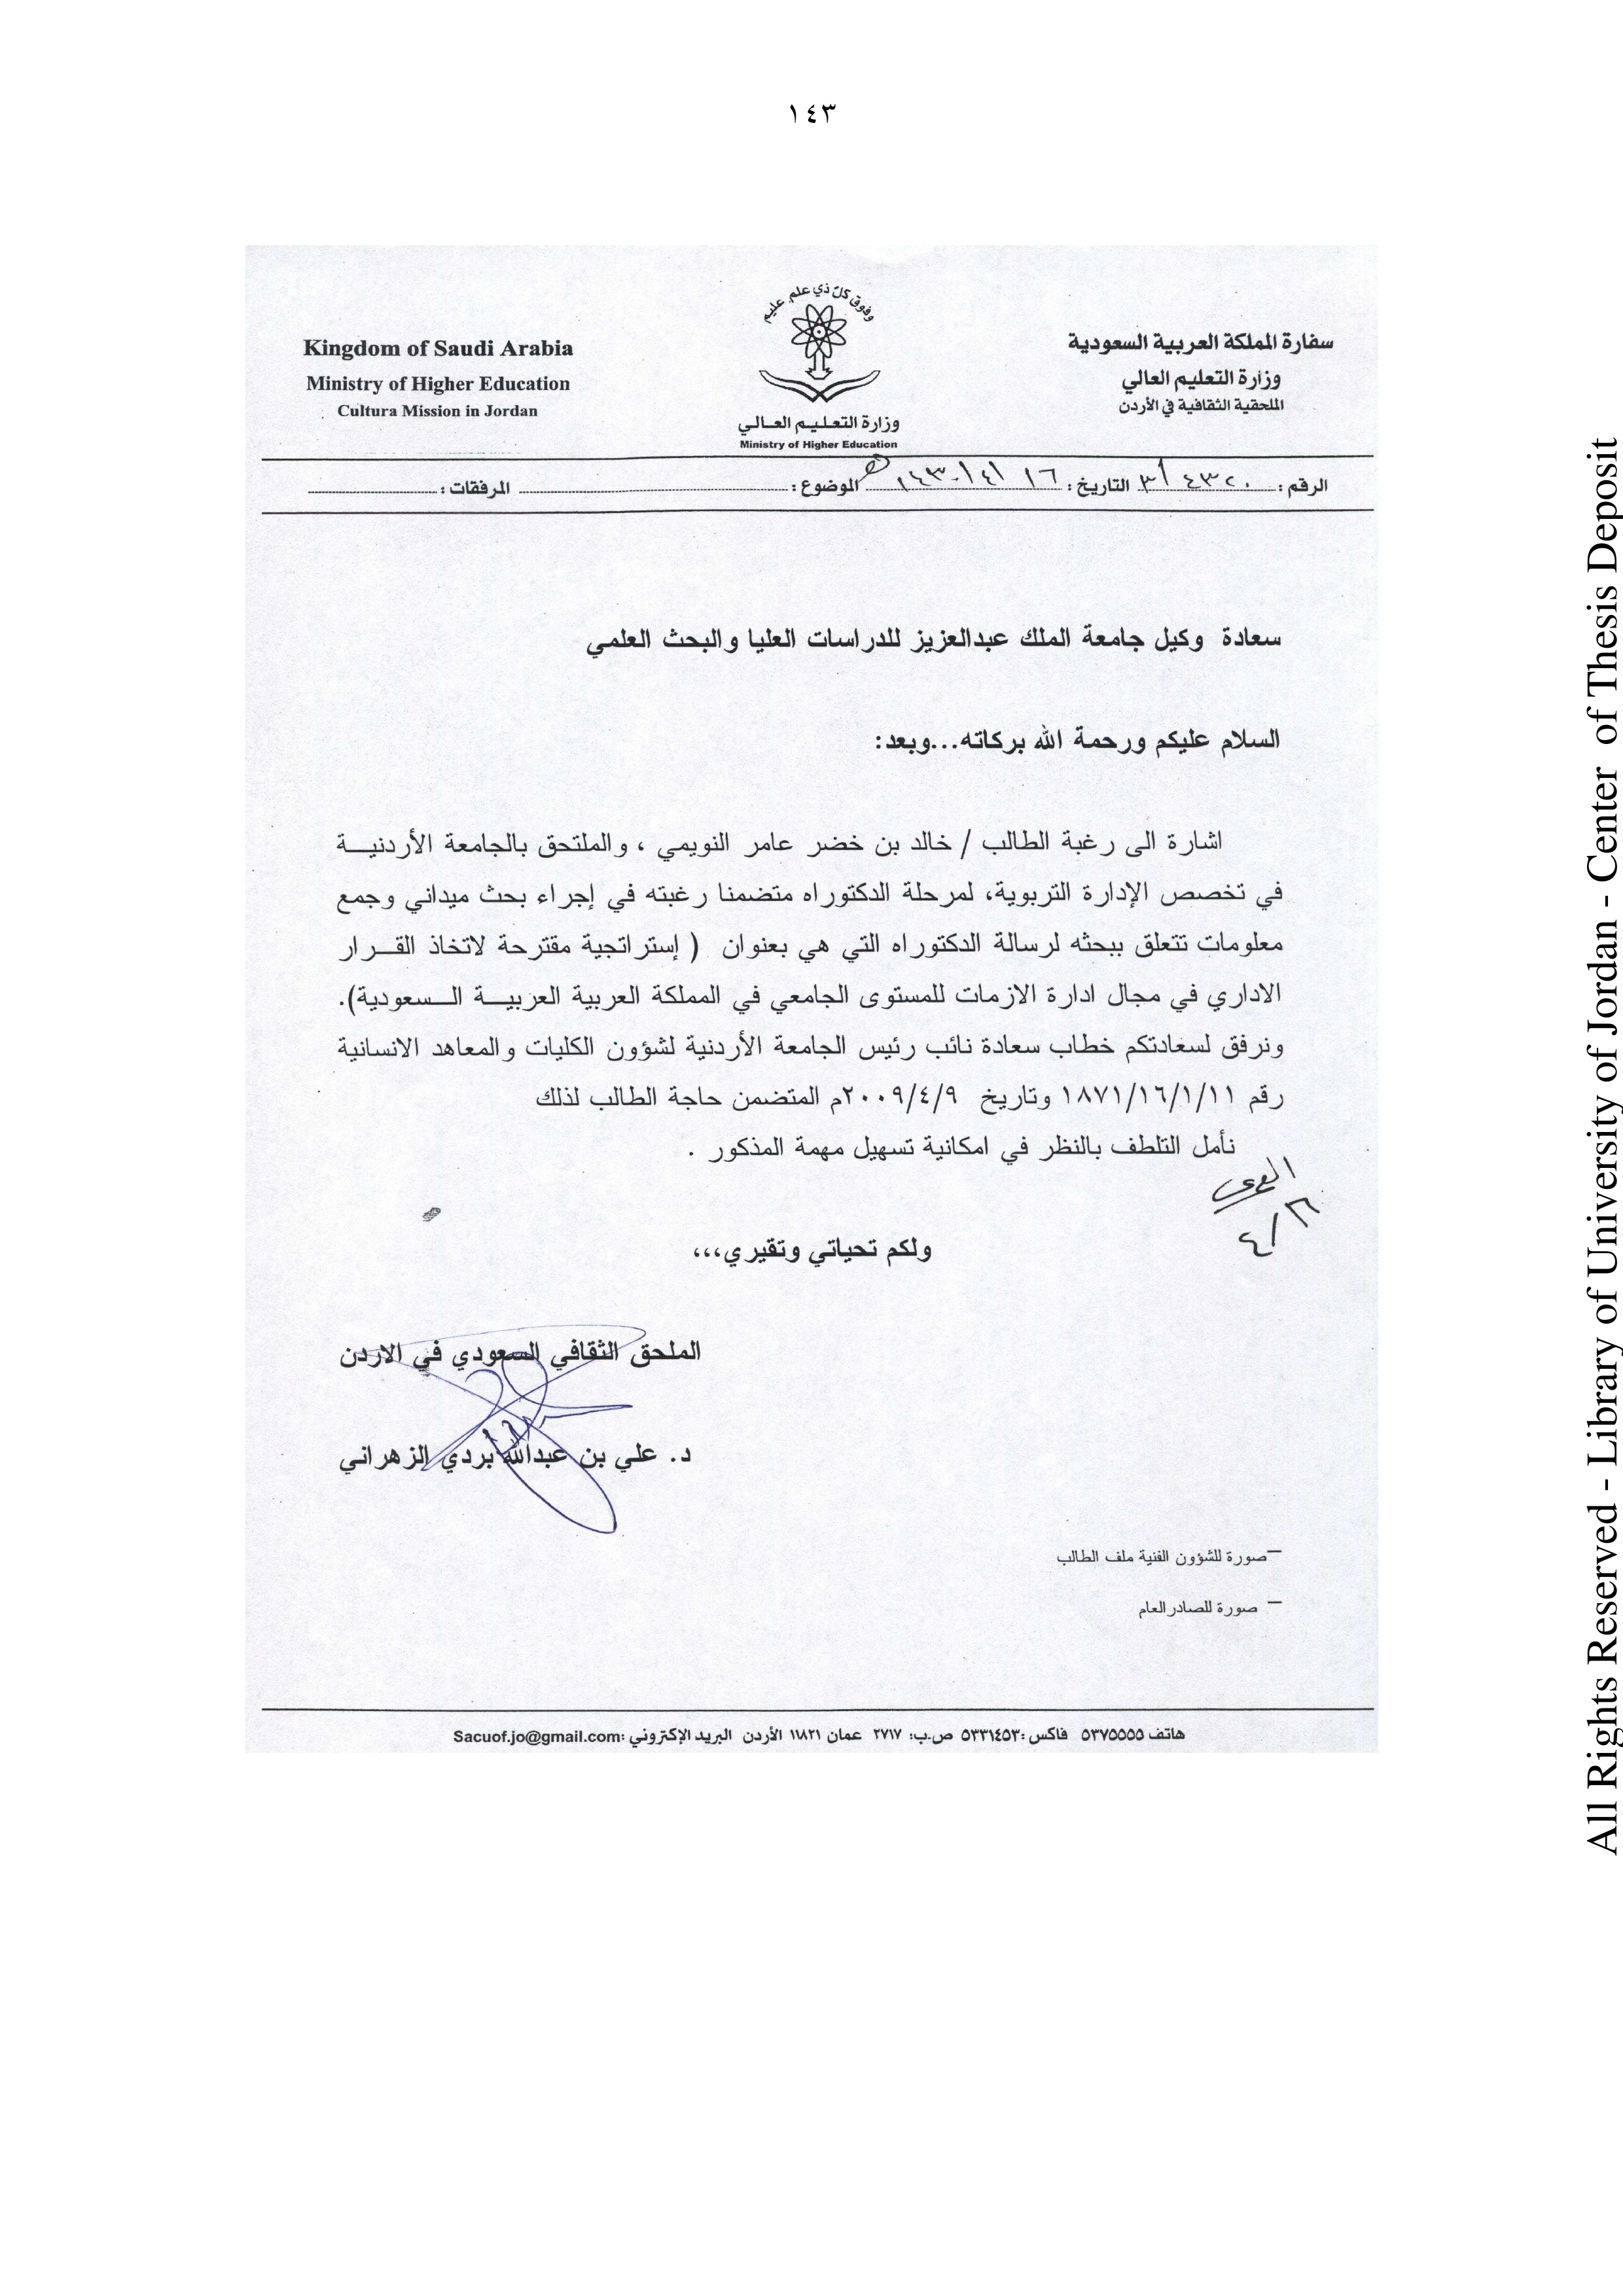 ١٤٣
سفارة المملكة العربية السعودية
وزارة التعليم العالي
الملحقية الثقافية في الأردن
وفوق كل ذي علم عليم
وزارة التعليم العالي
Ministry of Higher Education
Kingdom of Saudi Arabia
Ministry of Higher Education
Cultura Mission in Jordan
الرقم: ٤٣٢٠/٣ التاريخ: ١٦/٤/١٤٣٠هـ الموضوع: المرفقات:
سعادة وكيل جامعة الملك عبدالعزيز للدراسات العليا والبحث العلمي
السلام عليكم ورحمة الله بركاته...وبعد:
اشارة الى رغبة الطالب / خالد بن خضر عامر النويمي ، والملتحق بالجامعة الأردنية
في تخصص الإدارة التربوية، لمرحلة الدكتوراه متضمنا رغبته في إجراء بحث ميداني وجمع
معلومات تتعلق ببحثه لرسالة الدكتوراه التي هي بعنوان ( إستراتجية مقترحة لاتخاذ القرار
الاداري في مجال ادارة الازمات للمستوى الجامعي في المملكة العربية العربية السعودية).
ونرفق لسعادتكم خطاب سعادة نائب رئيس الجامعة الأردنية لشؤون الكليات والمعاهد الانسانية
رقم ١٨٧١/١٦/١/١١ وتاريخ ٢٠٠٩/٤/٩م المتضمن حاجة الطالب لذلك
نأمل التلطف بالنظر في امكانية تسهيل مهمة المذكور .
ولكم تحياتي وتقيري،،،
الملحق الثقافي السعودي في الاردن
د. علي بن عبدالله بردي الزهراني
–صورة للشؤون الفنية ملف الطالب
– صورة للصادر العام
هاتف ٥٣٧٥٥٥٥ فاكس :٥٣٣١٤٥٣ ص.ب: ٢٧١٧ عمان ١١٨٢١ الأردن البريد الإكتروني :Sacuof.jo@gmail.com
All Rights Reserved - Library of University of Jordan - Center of Thesis Deposit